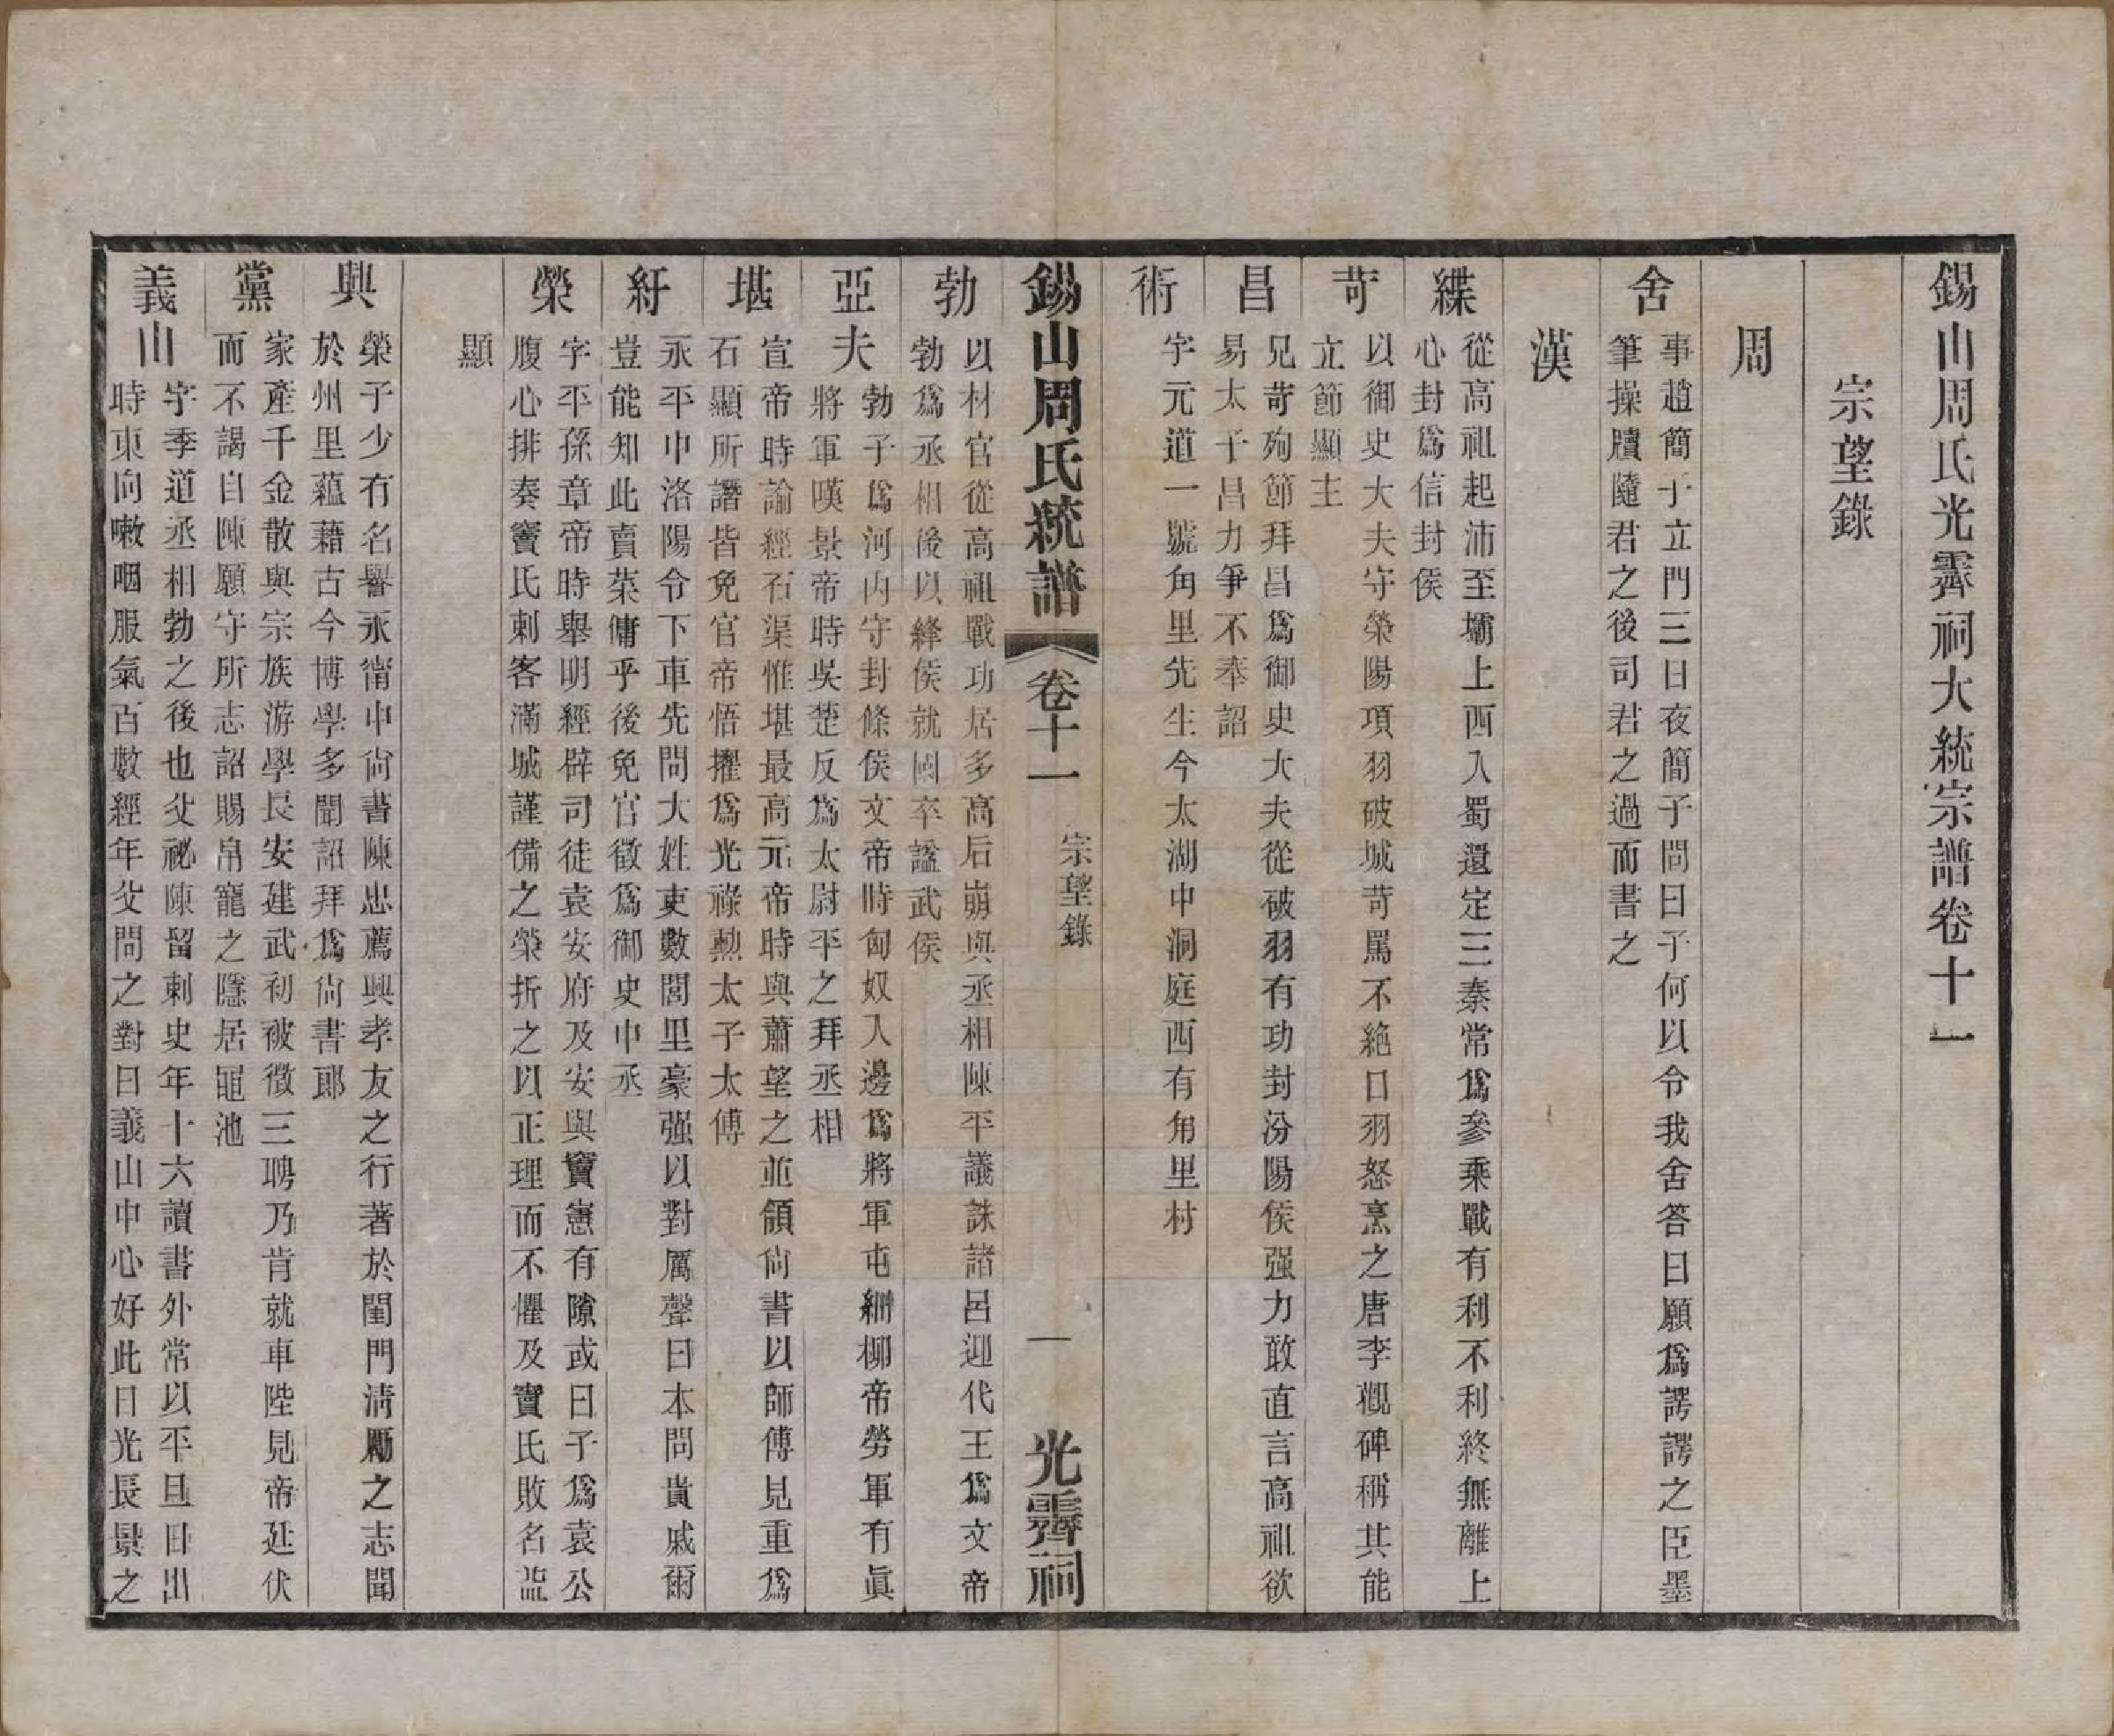 錫山周氏光霽祠大統宗譜卷十一
宗望錄
周
舍
事趙簡子立門三日夜簡子問曰子何以令我舍答曰願爲諤諤之臣墨
筆操牘隨君之後司君之過而書之
漢
緤
從高祖起沛至壩上西入蜀還定三秦常爲參乘戰有利不利終無離上
心封爲信封侯
苛
以御史大夫守榮陽項羽破城苛罵不絶口羽怒烹之唐李觀碑稱其能
立節顯主
昌
兄苛殉節拜昌爲御史大夫從破羽有功封汾陽侯强力敢直言高祖欲
易太子昌力爭不奉詔
術
字元道一號角里先生今太湖中洞庭西有角里村
錫山周氏統譜
卷十一
宗望錄
一
光霽祠
勃
以材官從高祖戰功居多高后崩與丞相陳平議誅諸呂迎代王爲文帝
勃爲丞相後以絳侯就國卒諡武侯
亞夫
勃子爲河內守封條侯文帝時匈奴入邊爲將軍屯細柳帝勞軍有眞
將軍嘆景帝時吳楚反爲太尉平之拜丞相
堪
宣帝時論經石渠惟堪最高元帝時與蕭望之並領尙書以師傅見重爲
石顯所譖皆免官帝悟擢爲光祿勲太子太傅
紆
永平中洛陽令下車先問大姓吏數閭里豪强以對厲聲曰本問貴戚爾
豈能知此賣菜傭乎後免官徵爲御史中丞
榮
字平孫章帝時舉明經辟司徒袁安府及安與竇憲有隙或曰子爲袁公
腹心排奏竇氏刺客滿城謹備之榮折之以正理而不懼及竇氏敗名益
顯
興
榮子少有名譽永甯中尙書陳忠薦興孝友之行著於閨門淸勵之志聞
於州里蘊藉古今博學多聞詔拜爲尙書郞
黨
家產千金散與宗族游學長安建武初被徵三聘乃肯就車陛見帝廷伏
而不謁自陳願守所志詔賜帛寵之隱居黽池
義山
字季道丞相勃之後也父祕陳留刺史年十六讀書外常以平旦日出
時東向嗽咽服氣百數經年父問之對曰義山中心好此日光長景之